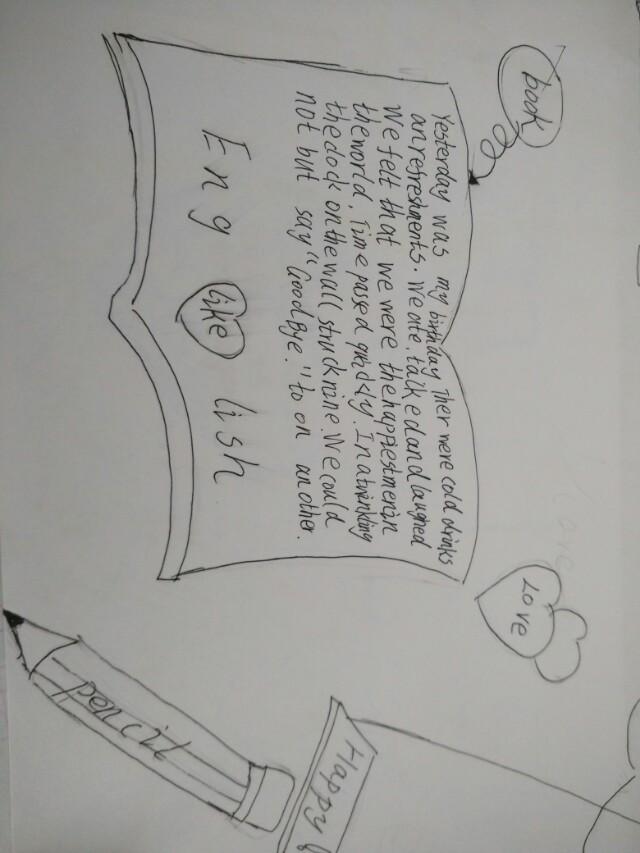 book
Yesterday was my birthday Ther were cold drinks
an refreshments. We ate, talked and laugned
We felt that we were the happiest men in
the world. Time passed quickly. In a twinkling
the clock on the wall struck nine. We could
not but say "Goodbye." to on another.
Eng like lish
Love
pencil
Happy